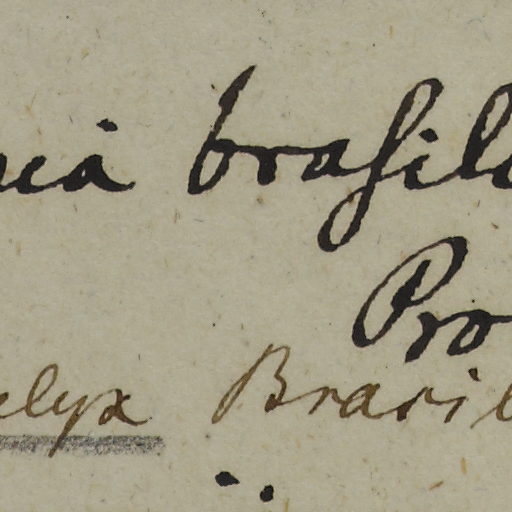 brasil
Pro
lyx Brasil